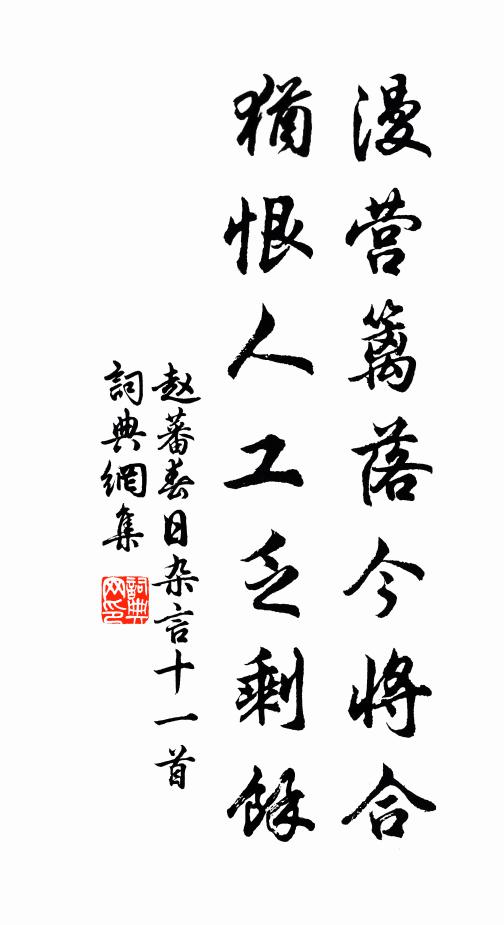 漫营篱落今将合
猶恨人工乏剩餘
赵蕃春日杂言十一首
詞典網集